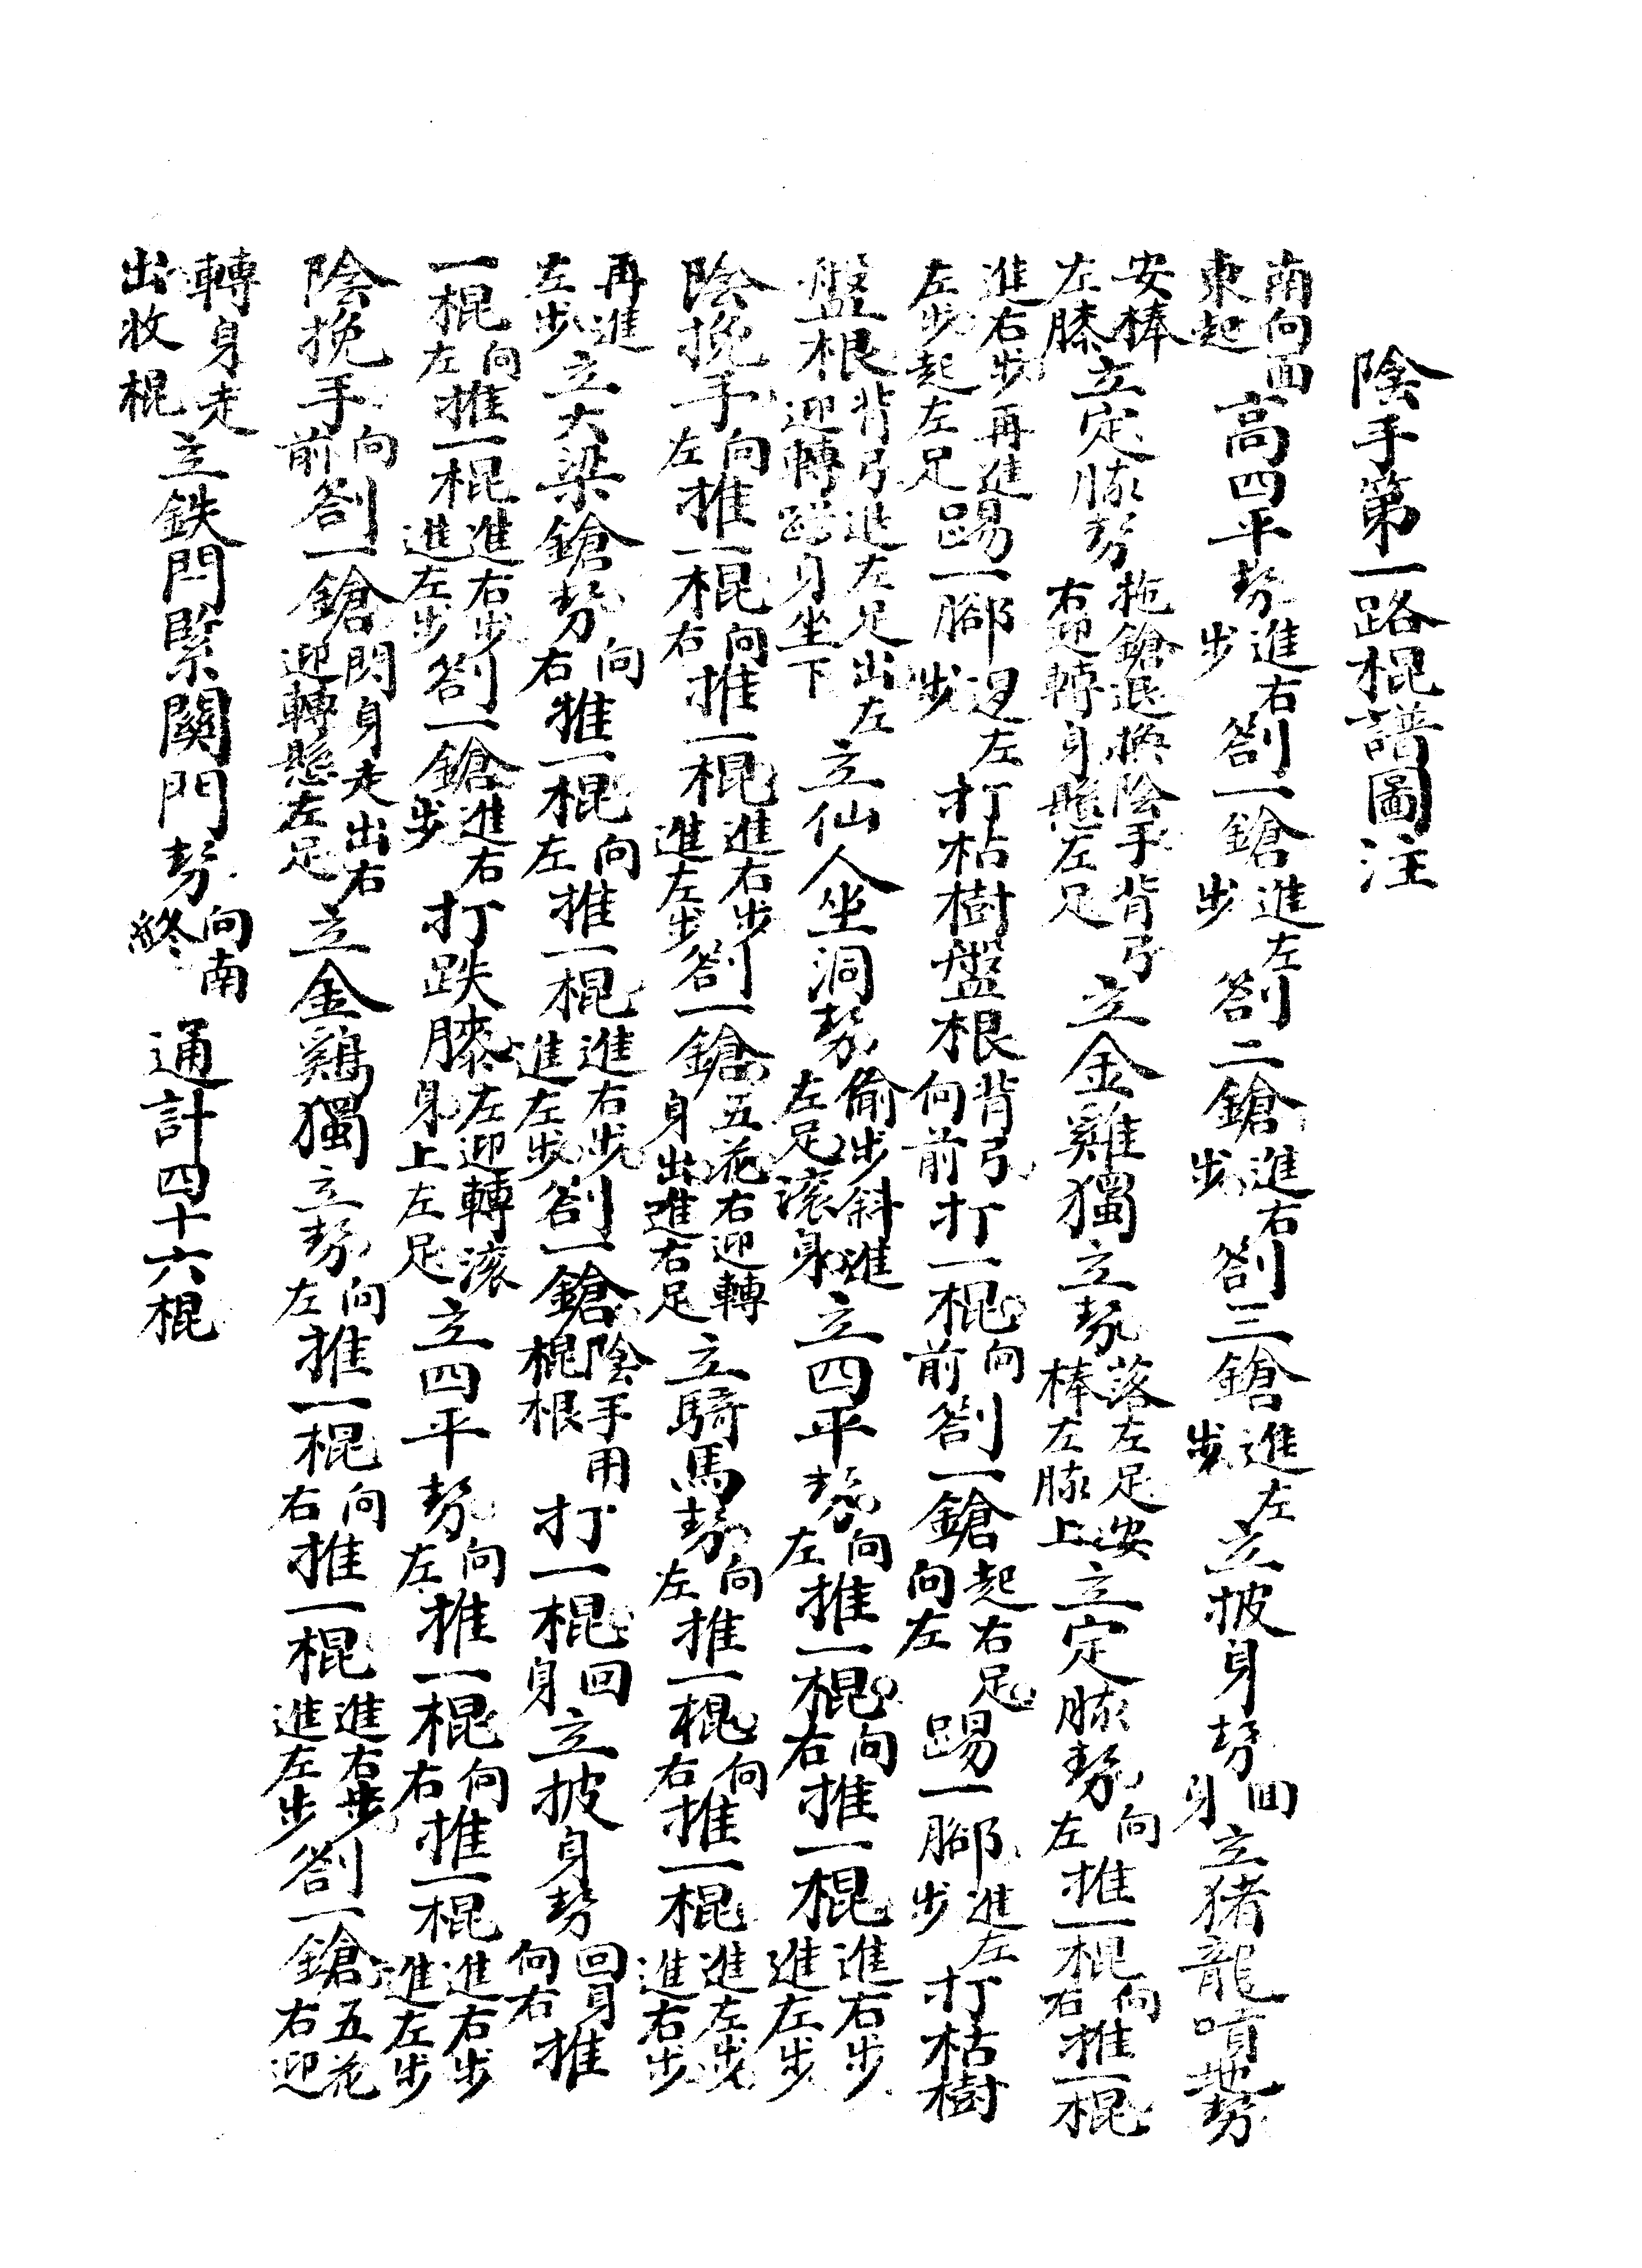 陰手第一路棍譜圖注
南向面東起高四平势進右步劄一鎗進左步劄二鎗進右步劄三鎗進左步立披身势回身立猪龍噴地势
安棒左膝立定膝势拖鎗退换陰手背弓右迎轉身懸左足立金雞獨立势落左足安棒左膝上立定膝势向左推一棍向右推一棍
進右步再進左步起左足踢一腳退左步打枯樹盤根背弓向前打一棍向前劄一鎗起右足向左踢一腳進左步打枯樹
盤根背弓進左足出左迎轉蹉身坐下立仙人坐洞势偷步斜進左足滚身立四平势向左推一棍向右推一棍進右步進左步
陰挽手向左推一棍向右推一棍進右步進左步劄一鎗五花右迎轉身出進右足立騎馬势向左推一棍向右推一棍進左步進右步
再進左步立大梁鎗势向右推一棍向左推一棍進右步進左步劄一鎗陰手用棍根打一棍回身立披身势回身向右推
一棍向左推一棍進右步進左步劄一鎗進右步打跌膝左迎轉滚身上左足立四平势向左推一棍向右推一棍進右步進左步
陰挽手向前劄一鎗閃身走出右迎轉懸左足立金鷄獨立势向左推一棍向右推一棍進右步進左步劄一鎗五花右迎
轉身走出收棍立鉄閂緊關門势向南終 通計四十六棍